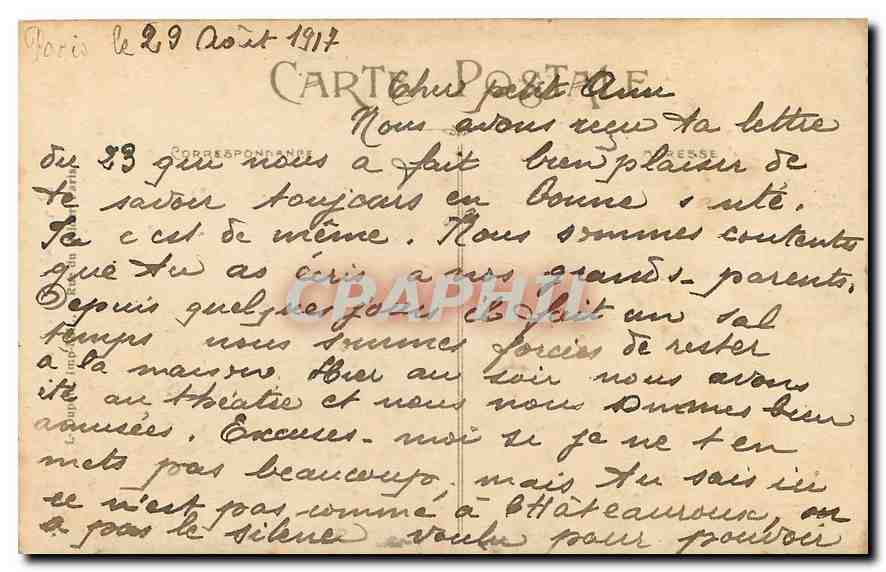 Paris le 29 Août 1917
CARTE POSTALE
Cher petit
Nous avons reçu ta lettre
CORRESPONDANCE ADRESSE
du 23 qui nous a fait bien plaisir de
te savoir toujours en bonne santé.
Ici c est de même. Nous sommes contentes
que tu as écris a nos grands-parents.
CPAPHIL
Depuis quelques jours il fait un sal
temps nous sommes forcies de rester
a la maison. Hier au soir nous avons
été au théatre et nous nous sommes bien
amusées. Excuses-moi si je ne t en
mets pas beaucoup, mais tu sais ici
ce n'est pas comme à Châteauroux, on
a pas le silence voulu pour pouvoir